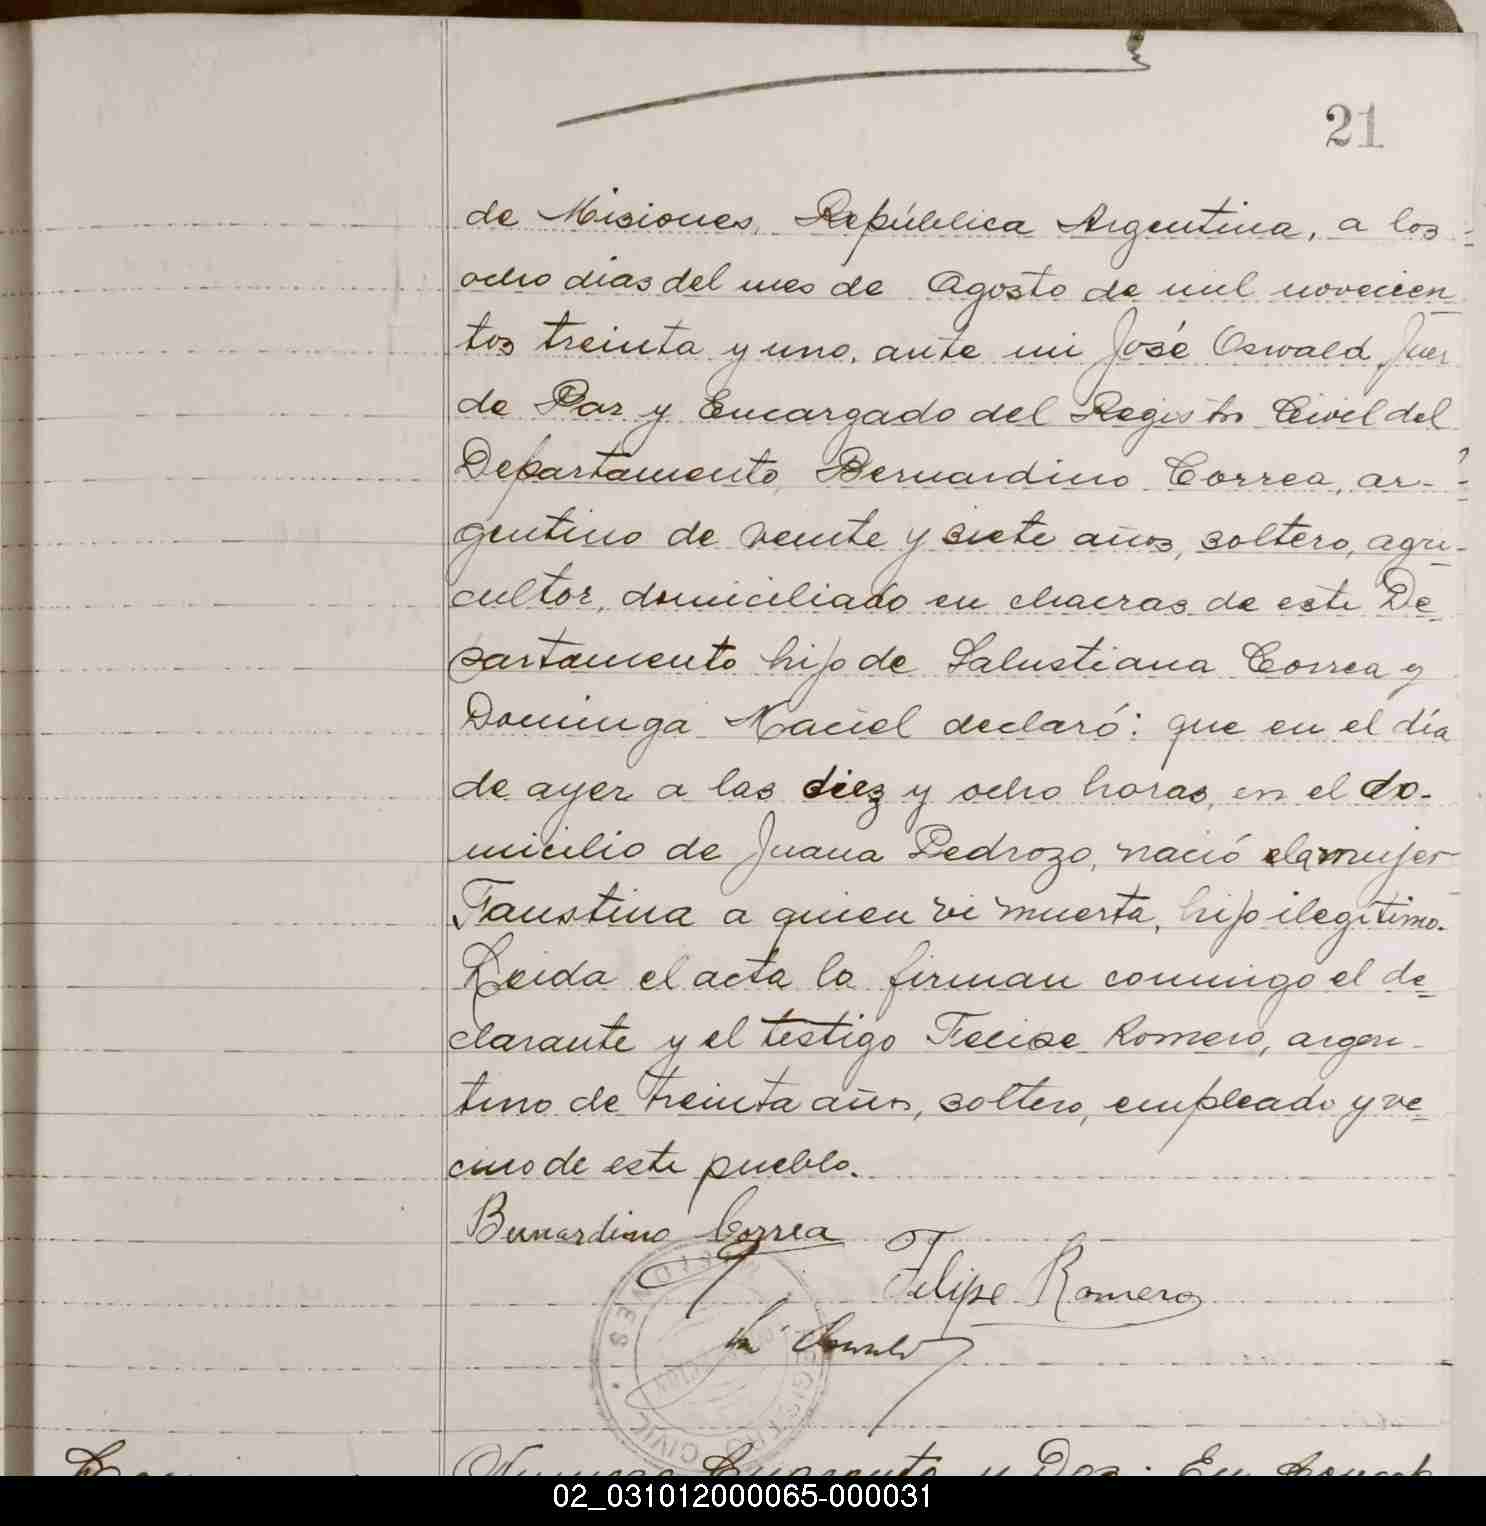 21
de Misiones, República Argentina, a los
ocho dias del mes de Agosto de mil novecien
tos treinta y uno, ante mi José Oswald, Juez
de Paz y Encargado del Registro Civil del
Departamento, Bernardino Correa, ar-
gentino de veinte y siete años, soltero, agri-
cultor, domiciliado en chacras de este De
partamento hijo de Salustiana Correa y
Dominga Maciel declaró: que en el día
de ayer a las diez y ocho horas, en el do-
micilio de Juana Pedrozo, nació la mujer
Faustina a quien vi muerta, hijo ilegítimo.
Leida el acta la firman conmigo el de
clarante y el testigo Felipe Romero, argen-
tino de treinta años, soltero, empleado y ve
cino de este pueblo.
Bernardino Correa
Felipe Romero
Oswald
MISIONES
REGISTRO CIVIL
Número Cuarenta y Dos: En
02_031012000065-000031